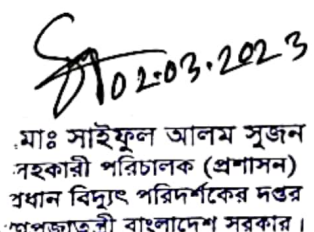 02.03.2023
মোঃ সাইফুল আলম সুজন
সহকারী পরিচালক (প্রশাসন)
প্রধান বিদ্যুৎ পরিদর্শকের দপ্তর
গণপ্রজাতন্ত্রী বাংলাদেশ সরকার।